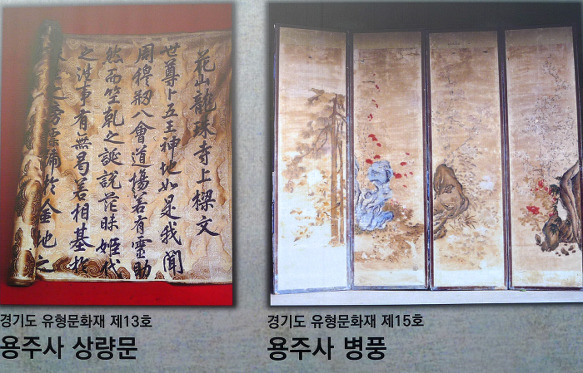 花山龍珠寺上樑文
世尊卜五王神地如是我聞
周穆刱八會道場若有靈助
然而竺乾之誕說茫昧姬代
之渺事有無曷若相基於
金地之
경기도 유형문화재 제13호
용주사 상량문
경기도 유형문화재 제15호
용주사 병풍